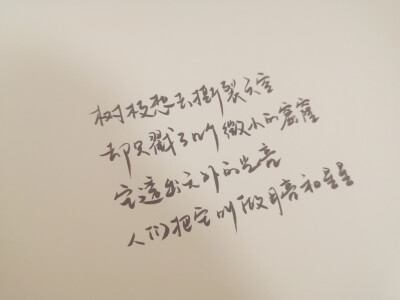 树枝想去撕裂天空
却只戳了几个微小的窟窿
它透出天外的光亮
人们把它叫做月亮和星星